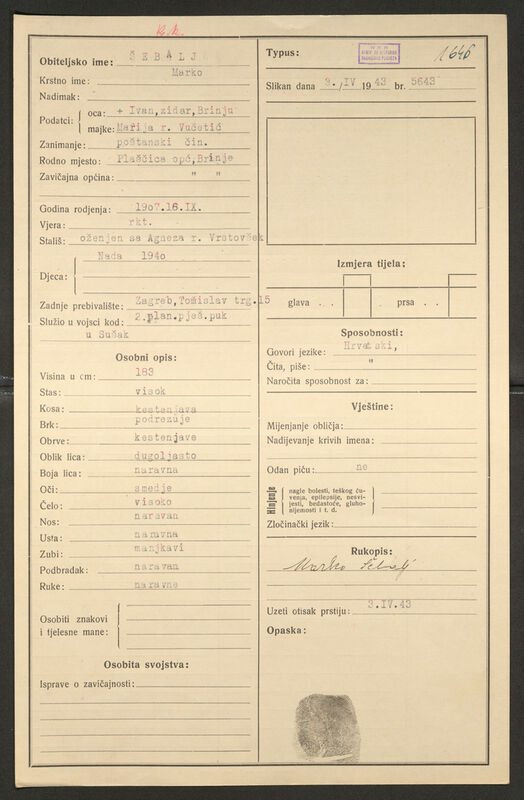 Obiteljsko ime: ŠEBALJ
Krstno ime: Marko
Nadimak:
Podatci: oca: + Ivan, zidar, Brinju
majke: Marija r. Vučetić
Zanimanje: poštanski čin.
Rodno mjesto: Plaščica opć, Brinje
Zavičajna općina: " "
Godina rodjenja: 1907.16.IX.
Vjera: rkt.
Stališ: oženjen sa Agneza r. Vrstovšek
Nada 1940
Djeca:
Zadnje prebivalište: Zagreb, Tomislav trg. 15
Služio u vojsci kod: 2. plan. pješ. puk
u Sušak
Osobni opis:
Visina u cm: 183
Stas: visok
Kosa: kestenjava
Brk: podrezuje
Obrve: kestenjave
Oblik lica: dugoljasto
Boja lica: naravna
Oči: smedje
Čelo: visoko
Nos: naravan
Usta: naravna
Zubi: manjkavi
Podbradak: naravan
Ruke: naravne
Osobiti znakovi
i tjelesne mane:
Osobita svojstva:
Isprave o zavičajnosti:
Typus: 1646
Slikan dana 3./IV 1943 br. 5643
Izmjera tijela:
glava . . prsa . .
Sposobnosti:
Govori jezike: Hrvatski,
Čita, piše: "
Naročita sposobnost za:
Vještine:
Mijenjanje obličja:
Nadijevanje krivih imena:
Odan piću: ne
Hinjenje
nagle bolesti, teškog ču-
venja, epilepsije, nesvi-
jesti, bedastoće, gluho-
nijemosti i t. d.
Zločinački jezik:
Rukopis:
Marko Šebalj
Uzeti otisak prstiju: 3.IV.43
Opaska: